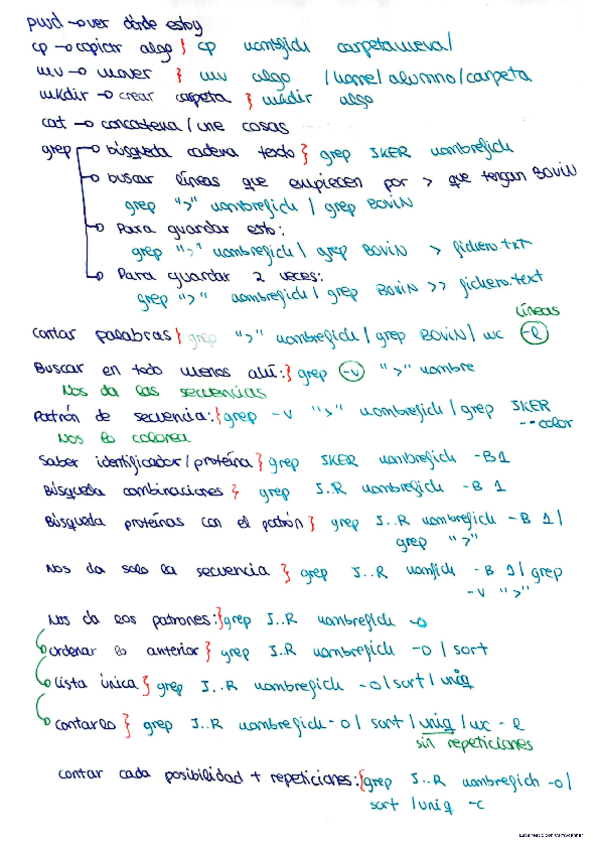 pwd → ver dónde estoy
cp → copiar algo } cp nomfich carpetanueva/
mv → mover } mv algo /home/alumno/carpeta
mkdir → crear carpeta } mkdir algo
cat → concatena / une cosas
grep → búsqueda cadena texto } grep SKER nombrefich
→ buscar líneas que empiecen por > que tengan BOVIN
grep ">" nombrefich | grep BOVIN
→ Para guardar esto:
grep ">" nombrefich | grep BOVIN > fichero.txt
→ Para guardar 2 veces:
grep ">" nombrefich | grep BOVIN >> fichero.text
líneas
contar palabras } grep ">" nombrefich | grep BOVIN | wc -l
Buscar en todo menos ahí: } grep -v ">" nombre
Nos da las secuencias
Patrón de secuencia: { grep -v ">" nombrefich | grep SKER
--color
Nos lo colorea
Saber identificador/proteína } grep SKER nombrefich -B1
Búsqueda combinaciones } grep S..R nombrefich -B 1
Búsqueda proteínas con el patrón } grep S..R nombrefich -B 1 |
grep ">"
Nos da solo la secuencia } grep S..R nomfich -B 1 | grep
-v ">"
Nos da los patrones: } grep S..R nombrefich -o
ordenar lo anterior } grep S.R nombrefich -o | sort
lista única } grep S..R nombrefich -o | sort | uniq
contarlo } grep S..R nombrefich -o | sort | uniq | wc -l
sin repeticiones
contar cada posibilidad + repeticiones: { grep S..R nombrefich -o |
sort | uniq -c